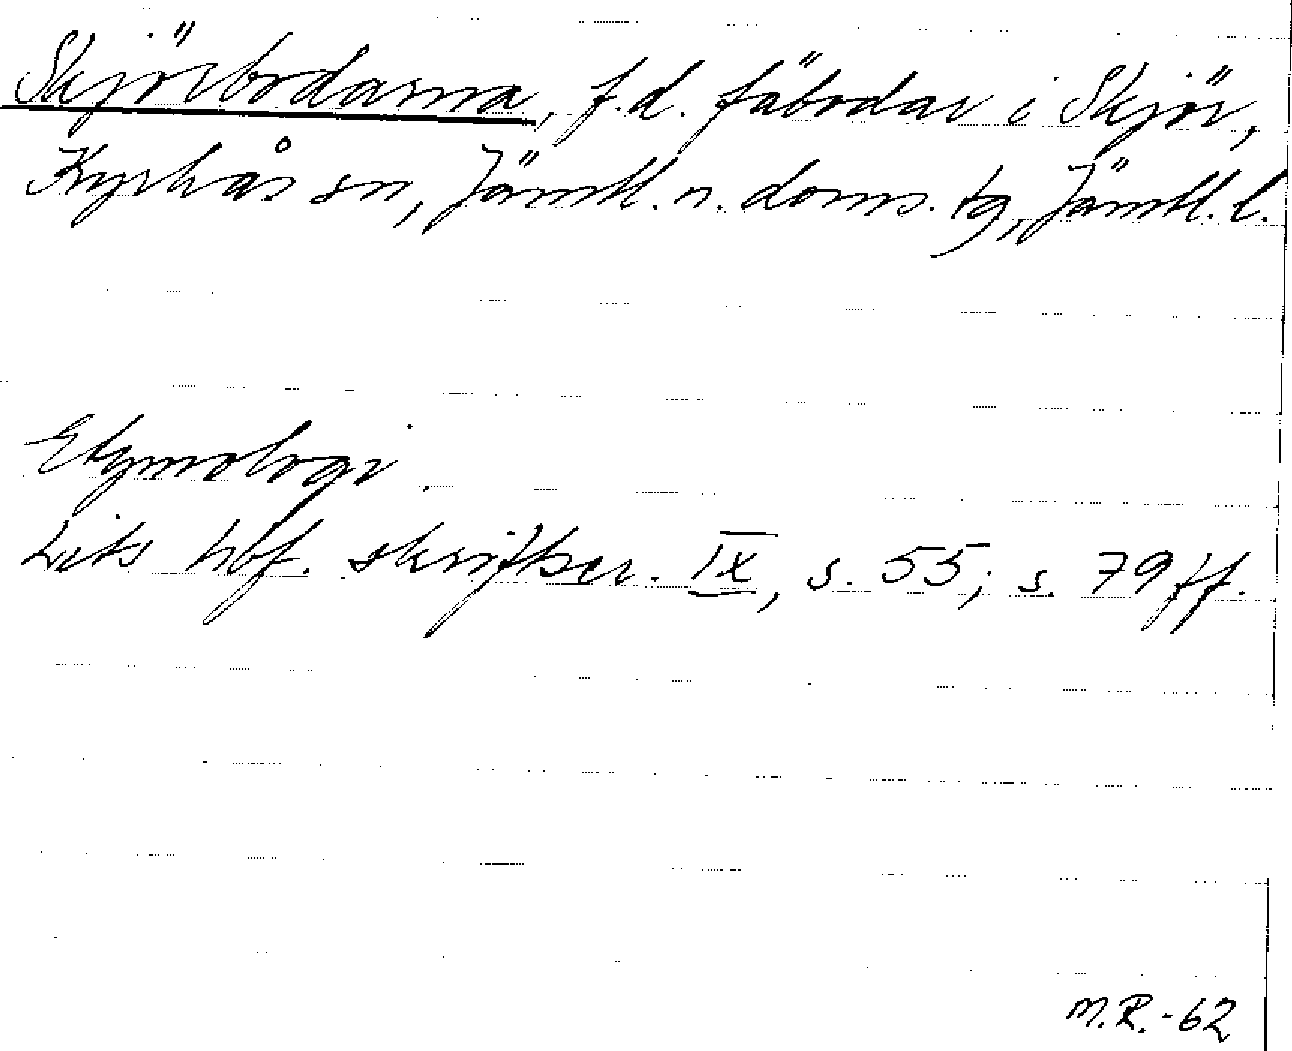 Skjörbodarna, f.d. fäbodar i Skjör,
Kyrkås sn, Jämtl. n. doms. tg, Jämtl. l.
Etymologi.
Lits hbf. skriftser. IX, s. 55; s. 79 ff.
M.R.-62